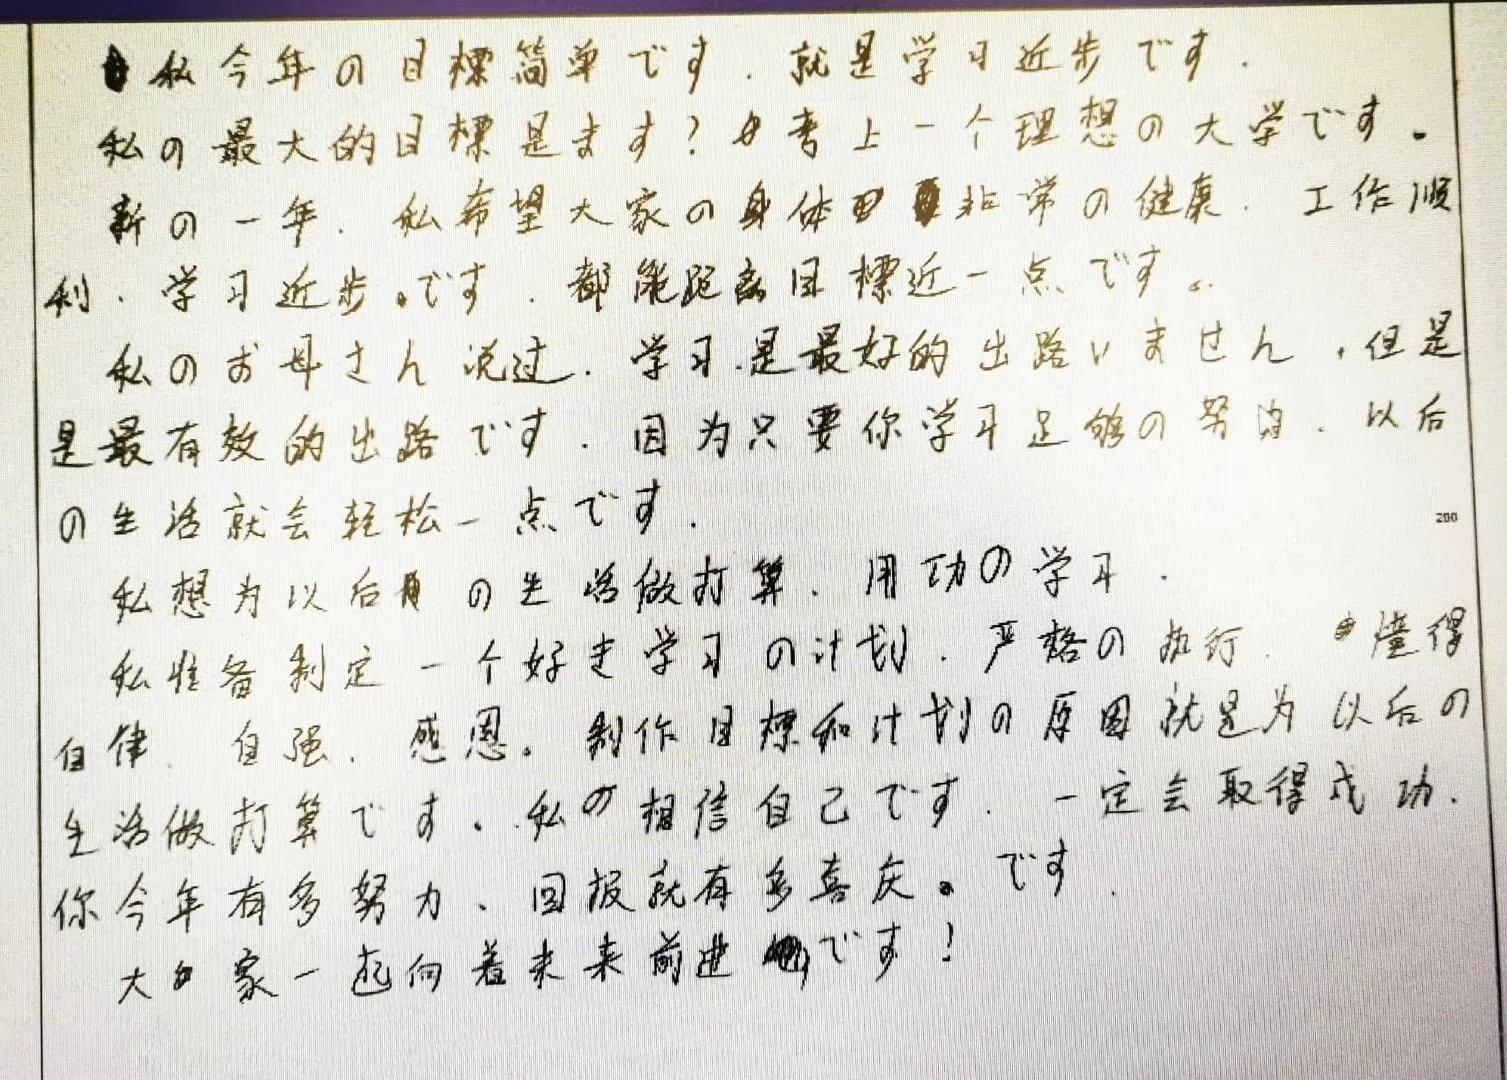 私今年の目標简单です、就是学习近步です。
私の最大的目標是ます？考上一个理想の大学です。
新の一年、私希望大家の身体非常の健康、工作顺
利、学习近步。です、都能距离目標近一点です。
私のお母さん说过、学习是最好的出路いません、但是
是最有效的出路です、因为只要你学习足够の努力、以后
の生活就会轻松一点です、
200
私想为以后の生活做打算、用功の学习、
私准备制定一个好走学习の计划、严格の执行、懂得
自律、自强、感恩。制作目標和计划の原因就是为以后の
生活做打算です。私の相信自己です、一定会取得成功、
你今年有多努力、回报就有多喜庆。です、
大家一起向着未来前进です！